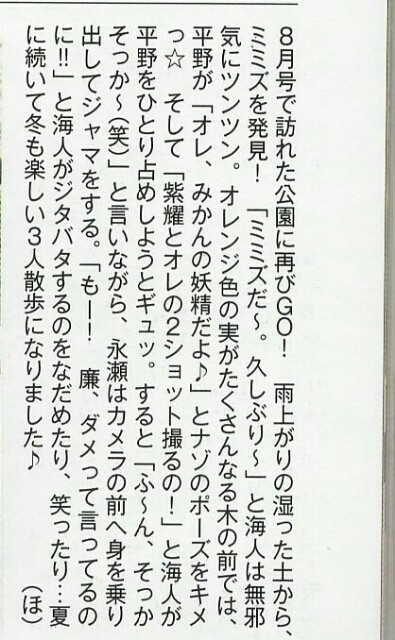 8月号で訪れた公園に再びGO! 雨上がりの湿った土から、
ミミズを発見! 「ミミズだ〜。久しぶり〜」と海人は無邪
気にツンツン。オレンジ色の実がたくさんなる木の前では、
平野が「オレ、みかんの妖精だよ♪」とナゾのポーズをキメ
っ☆ そして「紫耀とオレの2ショット撮るの!」と海人が
平野をひとり占めしようとギュッ。すると「ふ〜ん、そっか
そっか〜(笑)」と言いながら、永瀬はカメラの前へ身を乗り
出してジャマをする。「もー! 廉、ダメって言ってるの
に!!」と海人がジタバタするのをなだめたり、笑ったり…夏
に続いて冬も楽しい3人散歩になりました♪ (ほ)